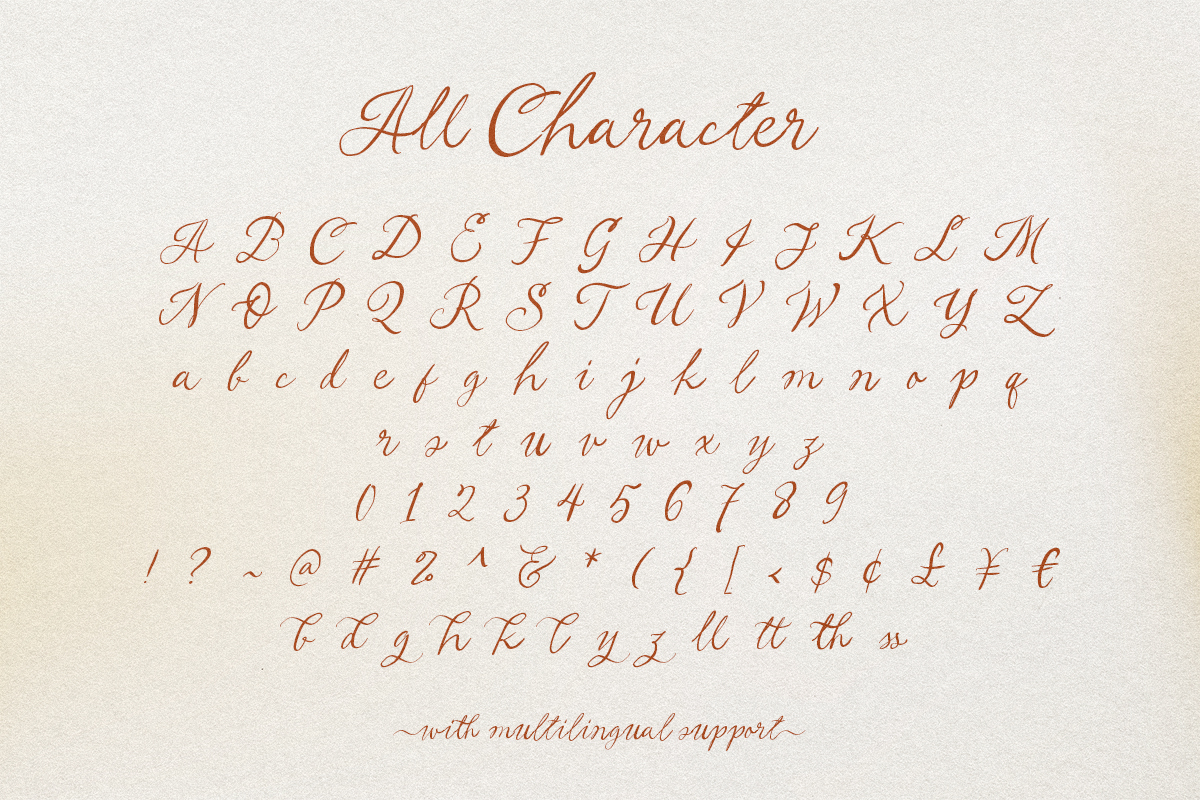 All Character
A B C D E F G H I J K L M
N O P Q R S T U V W X Y Z
a b c d e f g h i j k l m n o p q
r s t u v w x y z
0 1 2 3 4 5 6 7 8 9
! ? ~ @ # % ^ & * ( { [ < $ ¢ £ ¥ €
b d g h k l y z ll tt th ss
~with multilingual support~